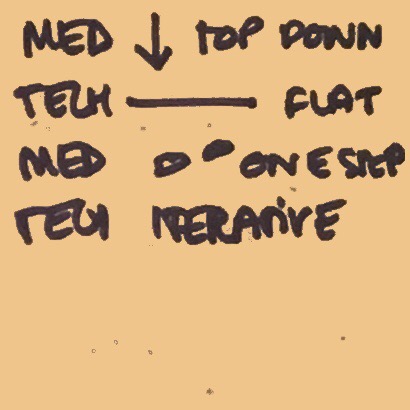 MED ↓ TOP DOWN
TECH — FLAT
MED ONE STEP
TECH ITERATIVE